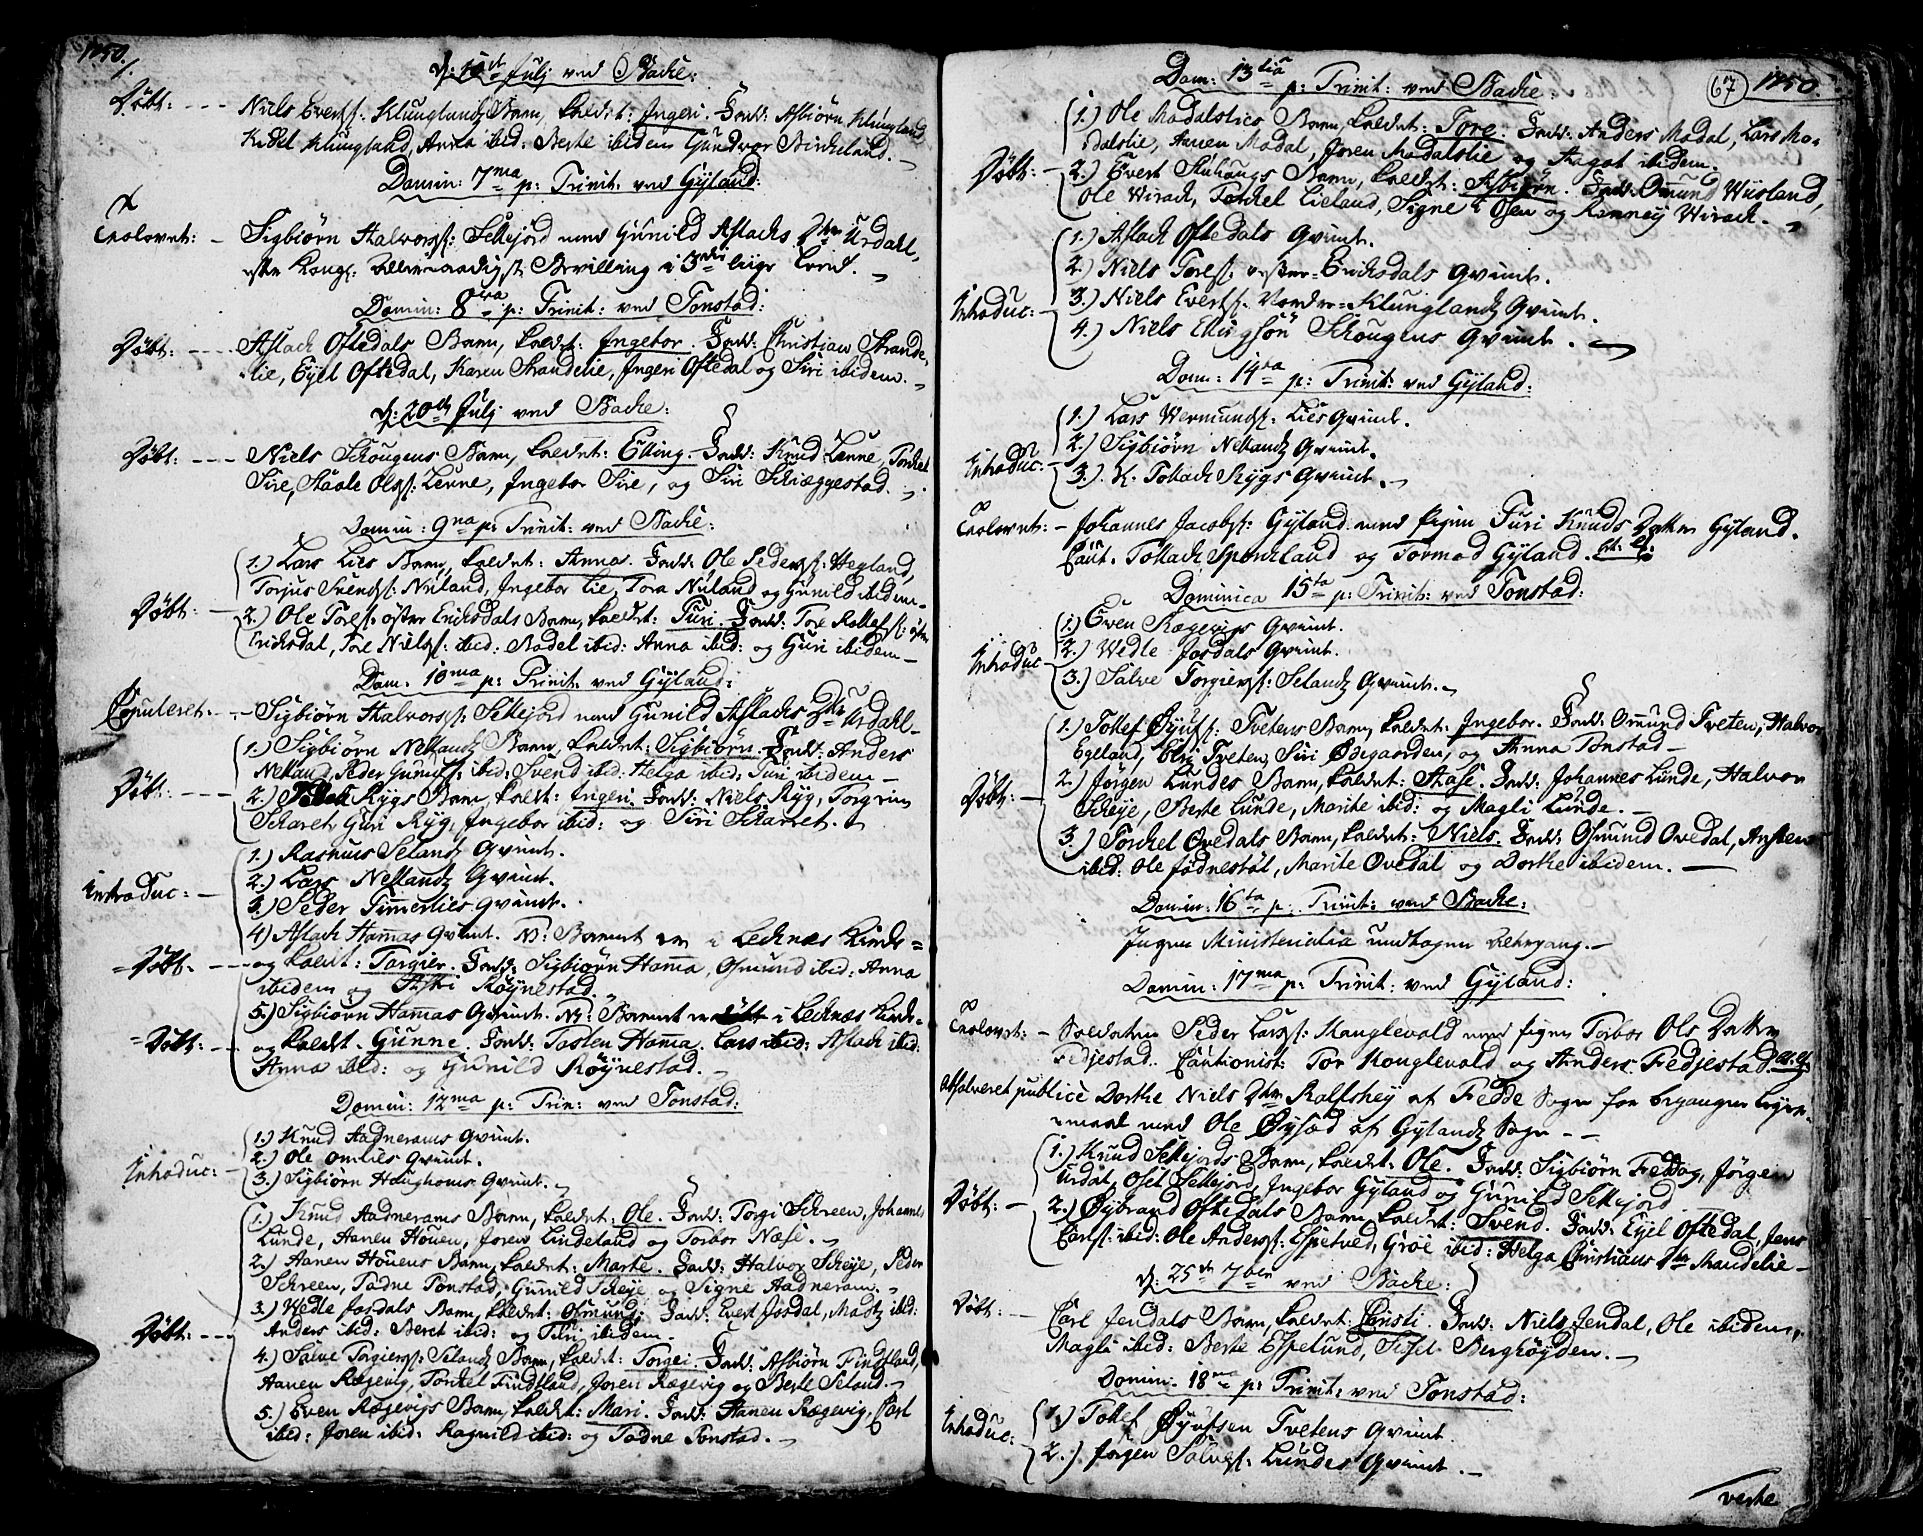 1750.
d: 10de Julj ved Backe:
Døbt: --- Niels Everts: Klunglandz Barn, kaldet: Ingeri. Fadd: Asbiørn Klungland
Kidel Klungland, Anna ibid: Berte ibidem Gundvor Birkeland.
Domin: 7ma p: Trinit: ved Gyland:
Trolovet: - Sigbiørn Halvors: Sellejord med Gunild Aslachs Dtr Urdahl,
efter Kongl: Allernaadigst Bevilling i 3die Liigs Leed.
Domin: 8va p: Trinit: ved Tonstad:
Døbt: --- Aslach Oftedals Barn, kaldet: Ingebor. Fadd: Christian Strande-
lie, Eyel Oftedal, Karen Strandelie, Ingeri Oftedal og Siri ibidem.
d: 20de Julj ved Backe:
Døbt: --- Niels Schougens Barn, kaldet: Elling. Fadd: Knud Lenne, Torkel
Sire, Staale Ols: Lenne, Ingebor Sire, og Siri Schreggestad.
Domin: 9na p: Trinit: ved Backe:
1.) Lars Lies Barn, kaldet: Anna. Fadd: Ole Peders: Hegland,
Torjus Svends: Nuland, Ingebor Lie, Tora Nuland og Gunild ibidem.
Døbt: - 2.) Ole Tores: øster Ericksdals Barn, kaldet: Turi. Fadd: Tore Rellefs: øster
Ericksdal, Tore Niels: ibid: Badel ibid: Anna ibid: og Guri ibidem -
Dom: 10ma p: Trinit: ved Gyland:
Copuleret: - Sigbiørn Halvors: Sellejord med Gunild Aslachs Dtr Urdahl -
1.) Sigbiørn Nellandz Barn, kaldet: Sigbiørn. Fadd: Anders
Nelland, Peder Gunufs: ibid: Svend ibid: Helga ibid: Turi ibidem -
Døbt: --- 2.) Tollach Rygs Barn, kaldt: Ingeri. Fadd: Niels Ryg, Torgrim
Scharet, Guri Ryg, Ingebor ibid: og Siri Scharret.
1.) Rasmus Selandz Qvinde.
2.) Lars Nellandz Qvinde.
Introduc: - 3.) Peder Timmerlies Qvinde.
4) Aslach Hammas Qvinde. NB: Barnet er i Lecknæs Kirke =
= Døbt. --- og kaldt: Torgier. Fadd: Sigbiørn Hamma, Osmund ibid: Anna
ibidem og Røynestad.
5.) Sigbiørn Hammas Qvinde. NB: Barnet er døbt i Lecknæs Kirke.
= Døbt: --- og kaldt. Gunne. Fadd: Tosten Hamma. Lars ibid: Aslach ibid:
Anna ibid: og Gunild Røynestad.
Domin: 12ma p: Trin: ved Tonstad:
1.) Knud Aadnerams Qvinde.
Introduc: - 2.) Ole Omlies Qvinde.
3.) Sigbiørn Haughoms Qvinde.
1.) Knud Aadnerams Barn, kaldet: Ole. Fadd: Torgi Schreen, Johannes
Lunde, Aanen Houen, Joren Lindeland og Torbor Næse.
2.) Aanen Houens Barn, kaldet: Marte. Fadd: Halvor Scheje, Peder
Schreen, Tadne Tonstad, Gunnild Scheje og Signe Aadneram.
3.) Wedle Josdals Barn, kaldet: Osmund. Fadd: Evert Josdal, Madtz ibid:
Døbt: --- Anders ibid: Beret ibid: og ibidem -
4.) Salve Torgiers: Selandz Barn, kaldet: Torgei. Fadd: Asbiørn Findtland,
Aanen Rægevig, Torkel Findtland, Joren Rægevig og Berte Seland.
5.) Even Rægevigs Barn, kaldet: Mari. Fadd: Aanen Rægevig, Carl
ibid: Joren ibid: Ragnild ibid: og Tadne Tonstad.
67 1750.
Dom: 13tia p: Trinit: ved Backe:
1.) Ole Modalslies Barn, kaldet: Tore. Fadd: Anders Modal, Lars Mo-
dalslie, Aanen Modal, Joren Modalslie og Aagot ibidem.
Døbt: - 2.) Evert Barn, kaldet: Asbiørn. Fadd: Omund Wiisland,
Ole Wirach, Torkel Lieland, Signe Osen og Ranney Wirach.
1.) Aslach Oftedals Qvinde.
2.) Niels Tores: vester-Ericksdals Qvinde.
Introduc: - 3.) Niels Everts: Nordre-Klunglandz Qvinde.
4.) Niels Ellingsøn Schougens Qvinde.
Dom: 14ta p: Trinit: ved Gyland:
1.) Lars Wermunds: Lies Qvinde.
Introduc: - 2.) Sigbiørn Nellandz Qvinde.
3.) K. Tollach Rygs Qvinde.
Trolovet: - Johannes Jacobs: Gyland med Pigen Turi Knuds Datter Gyland.
Caut. Tollach Sponeland og Tormod Gyland.
Dominica 15ta p: Trinit: ved Tonstad:
1.) Even Rægevigs Qvinde.
Introduc - 2.) Wedle Josdals Qvinde.
3.) Salve Torgiers: Selandz Qvinde.
1.) Tollef Øyufs: Tvetens Barn, kaldet: Ingebor. Fadd: Omund Tveten, Halvor
Egeland, Elri Tveten, Siri Ødegaarden, og Anna Tonstad -
Døbt: - 2.) Jørgen Lundes Barn, kaldet: Aase. Fadd: Johannes Lunde, Halvor
Scheje, Berte Lunde, Marite ibid: og Magli Lunde.
3.) Torkel Ovedals Barn, kaldet: Niels. Fadd: Osmund Ovedal, Ansten
ibid: Ole Jødnestøl, Marite Ovedal og Dorthe ibidem.
Domin: 16ta p: Trinit: ved Backe:
Ingen Ministerialia undtagen Altergang.
Domin: 17ma p: Trinit: ved Gyland:
Trolovet: - Soldaten Peder Lars: Mauglevald med Pigen Torbor Ols Datter
Fedjestad. Cautionist: Tor Mouglevald og Anders Fedjestad
Absolveret publicè Dorthe Niels Dtr Ralfshey af Fedde Sogn for begangen Leyer-
maal med Ole Øysæd af Gylandz Sogn --
1.) Knud Sellejords Barn, kaldet: Ole. Fadd: Sigbiørn Feddog, Jørgen
Urdal, Osel Sellejord, Ingebor Gyland og Gunild Sellejord
Døbt: - 2.) Øybrand Oftedals Barn, kaldet: Svend. Fadd: Eyel Oftedal, Jens
Carls: ibid: Ole Anders: Espetved, Groe ibid: Helga Christians Dtr Strandelie -
d: 25de 7ber ved Backe:
Døbt: - Carl Jendals Barn, kaldet: Cirsti. Fadd: Niels Jendal, Ole ibidem,
Magli ibid: Berte Espelund, Sisel Berghøyden.
Domin. 18va p: Trinit: ved Tonstad:
Introduc: 1.) Tollef Øyufsen Tvetens Qvinde.
2.) Jørgen Salves: Lundes Qvinde.
verte